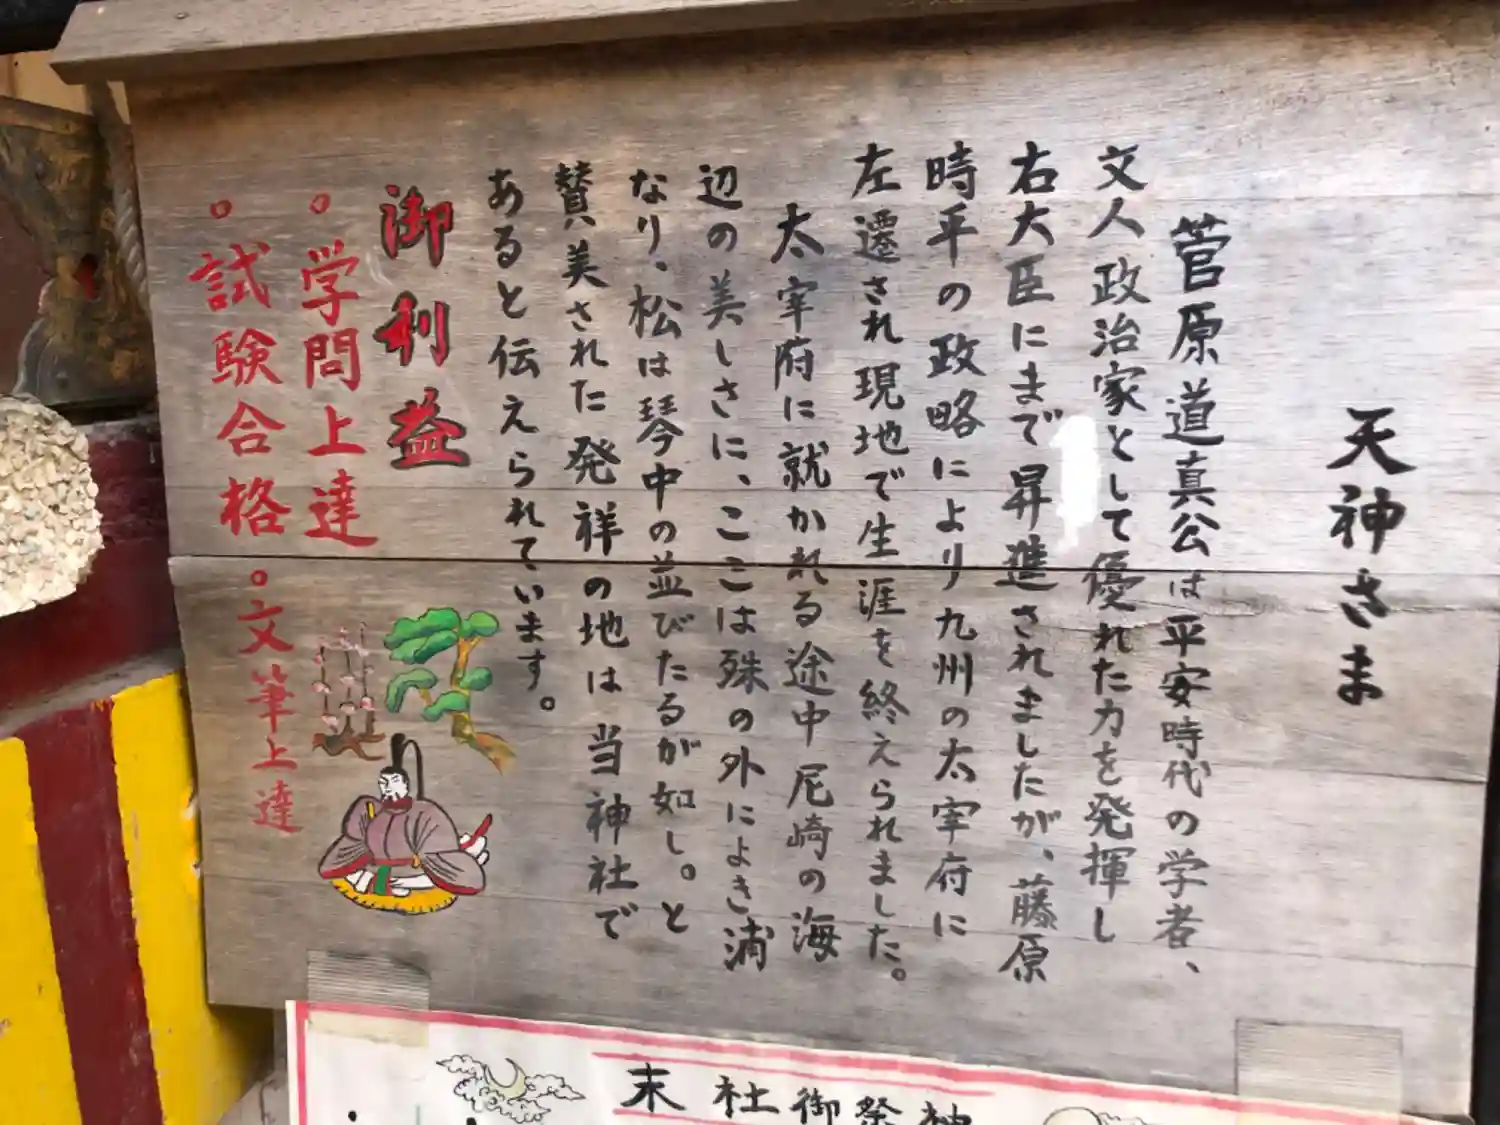 天神さま
菅原道真公は平安時代の学者、
文人政治家として優れた力を発揮し
右大臣にまで昇進されましたが、藤原
時平の政略により九州の太宰府に
左遷され現地で生涯を終えられました。
太宰府に就かれる途中尼崎の海
辺の美しさに、ここは殊の外によき浦
なり、松は琴中の並びたるが如し。と
賛美された発祥の地は当神社で
あると伝えられています。
御利益
。学問上達
。試験合格。文筆上達
末社御祭神